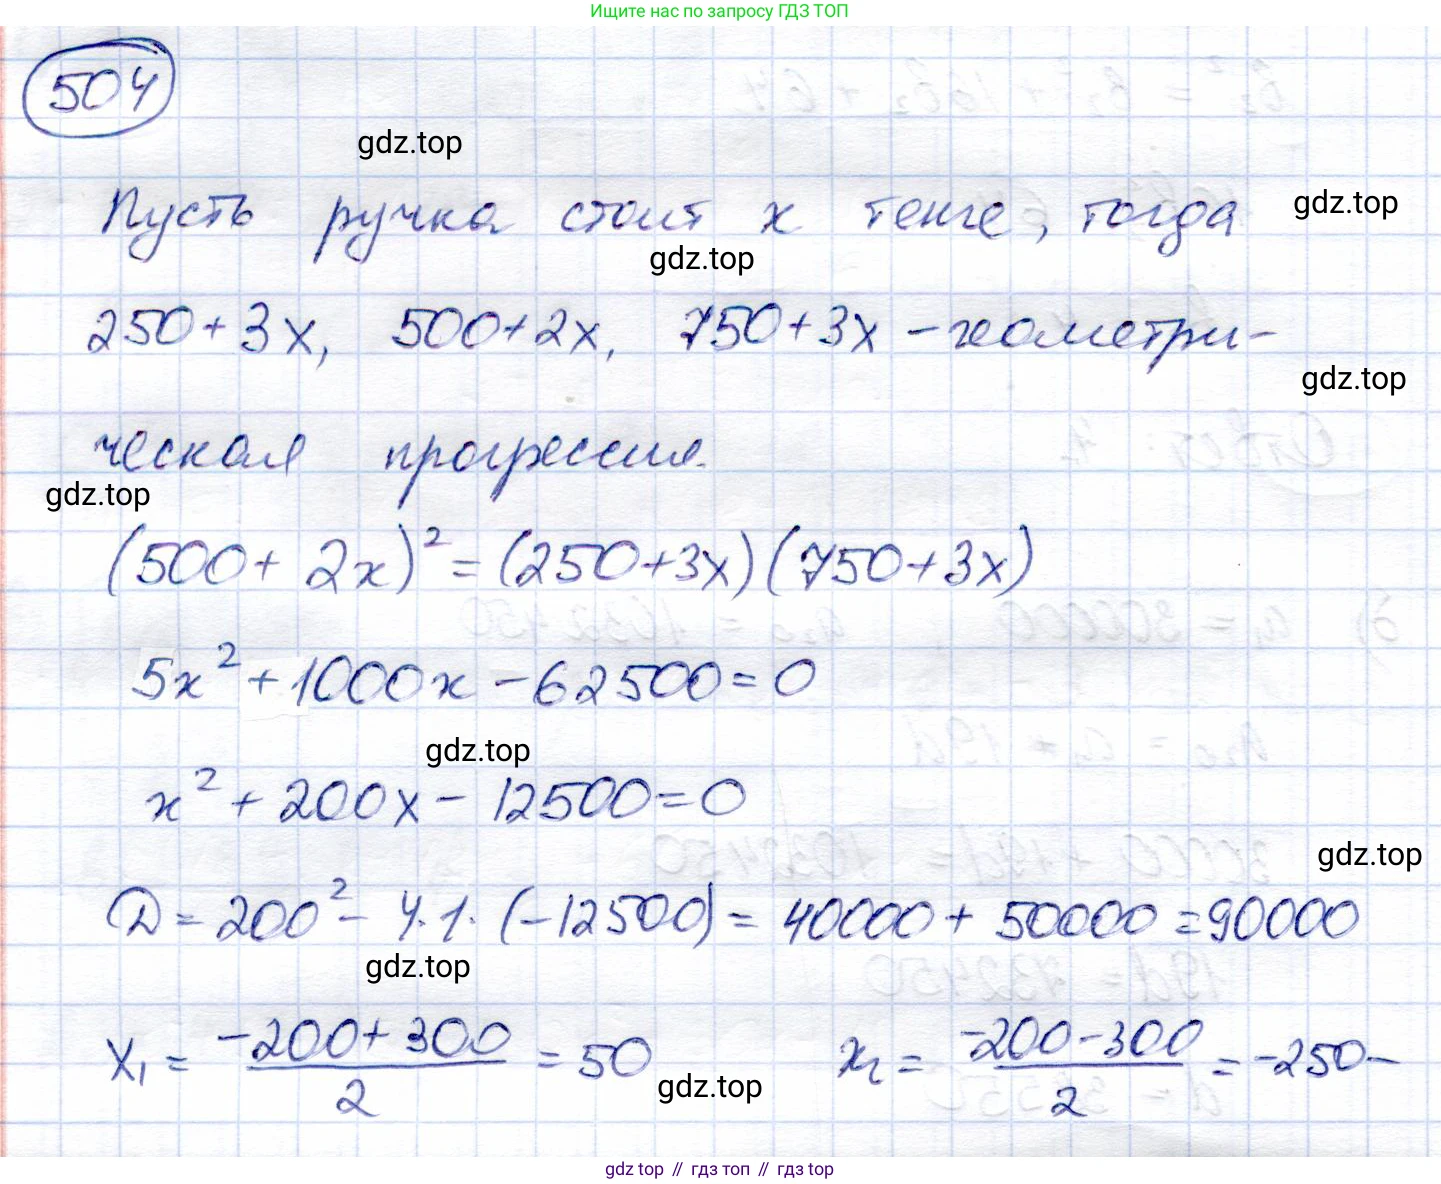 Ищите нас по запросу ГДЗ ТОП
504
gdz.top
Пусть ручка стоит x тенге, тогда
gdz.top
gdz.top
250+3x, 500+2x, 750+3x - геометри-
gdz.top
ческая прогрессия.
gdz.top
(500+2x)² = (250+3x)(750+3x)
5x² + 1000x - 62500 = 0
gdz.top
x² + 200x - 12500 = 0
gdz.top
D = 200² - 4·1·(-12500) = 40000 + 50000 = 90000
gdz.top
x₁ = (-200+300)/2 = 50 x₂ = (-200-300)/2 = -250-
gdz.top
gdz top // гдз топ // gdz top